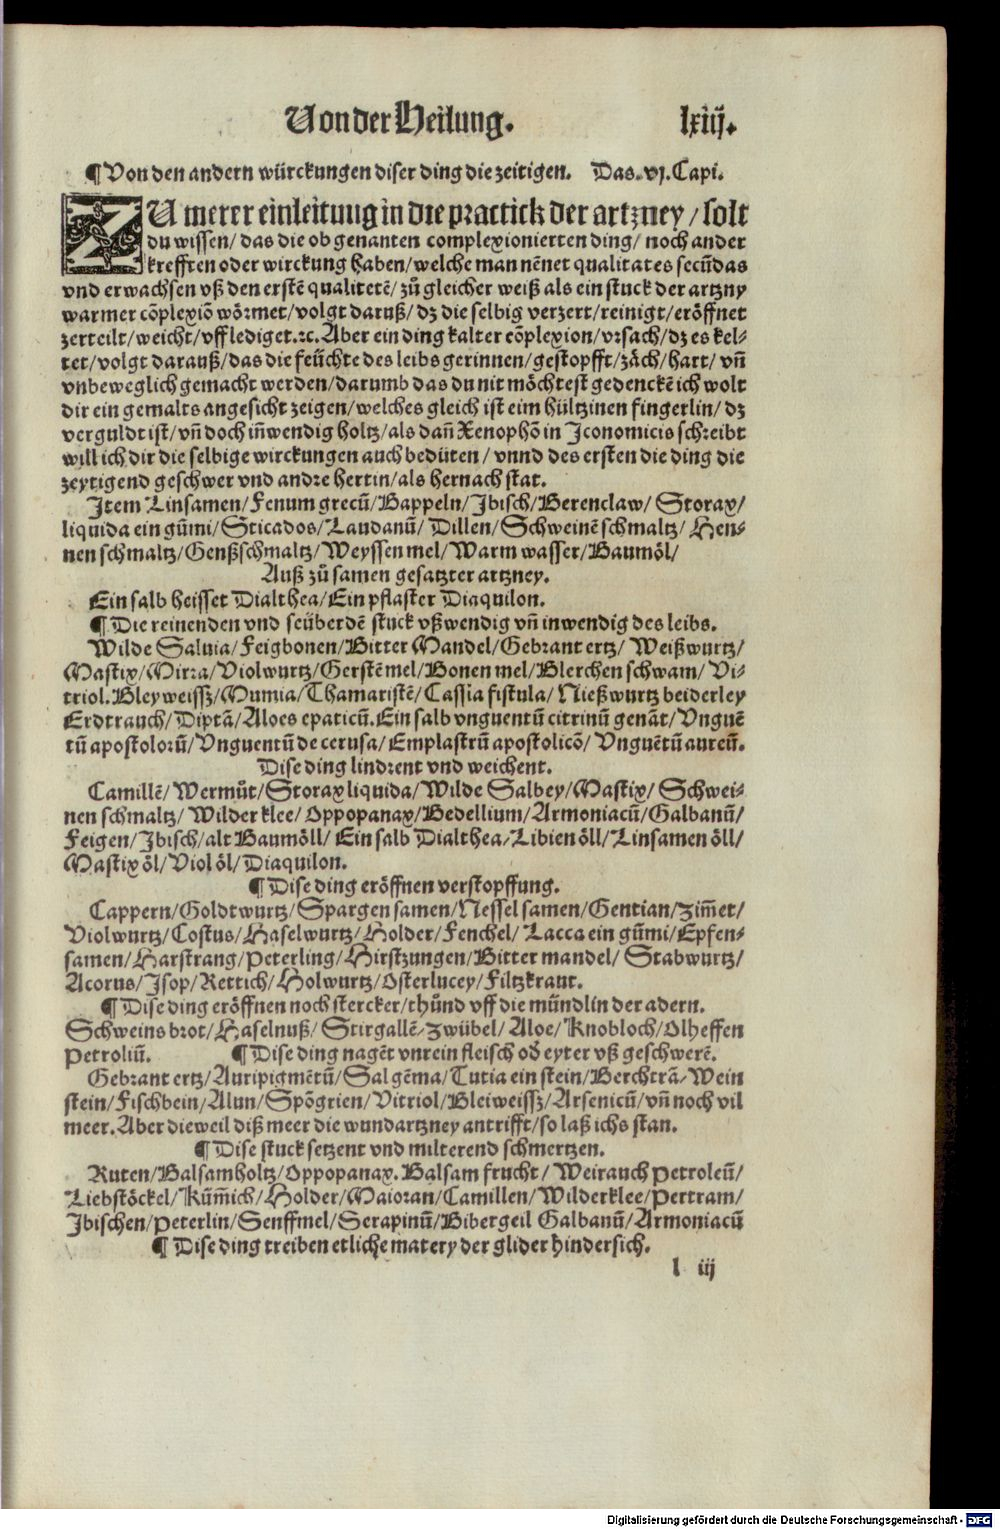 Von der Heilung. lxiij.
¶ Von den andern würckungen diser ding die zeitigen. Das. vj. Capi.
ZU merer einleitung in die practick der artzney / solt
du wissen / das die ob genanten complexionierten ding / noch ander
krefften oder wirckung haben / welche man nēnet qualitates secūdas
vnd erwachsen vß den erstē qualitetē / zů gleicher weiß als ein stuck der artzny
warmer cōplexiō wörmet / volgt daruß / dz die selbig verzert / reinigt / eröffnet
zerteilt / weicht / vfflediget. ꝛc. Aber ein ding kalter cōplexion / vrsach / dz es kel⸗
tet / volgt darauß / das die feüchte des leibs gerinnen / gestopfft / zäch / hart / vñ
vnbeweglich gemacht werden / darumb das du nit möchtest gedenckē ich wolt
dir ein gemalts angesicht zeigen / welches gleich ist eim hültzinen fingerlin / dz
verguldt ist / vñ doch iñwendig holtz / als dañ Xenophō in Iconomicis schreibt
will ich dir die selbige wirckungen auch bedüten / vnnd des ersten die ding die
zeytigend geschwer vnd andre hertin / als hernach stat.
Item Linsamen / Fenum grecū / Bappeln / Ibisch / Berenclaw / Storax /
liquida ein gūmi / Sticados / Laudanū / Dillen / Schweinē schmaltz / Hen⸗
nen schmaltz / Genßschmaltz / Weyssen mel / Warm wasser / Baumöl /
Auß zů samen gesatzter artzney.
Ein salb heisset Dialthea / Ein pflaster Diaquilon.
¶ Die reinenden vnd seüberdē stuck vßwendig vñ inwendig des leibs.
Wilde Saluia / Feigbonen / Bitter Mandel / Gebrant ertz / Weißwurtz /
Mastix / Mirra / Violwurtz / Gerstē mel / Bonen mel / Blerchen schwam / Vi⸗
triol. Bleyweissz / Mumia / Thamaristē / Cassia fistula / Nießwurtz beiderley
Erdtrauch / Diptā / Aloes epaticū. Ein salb vnguentū citrinū genāt / Vnguē
tū apostolorū / Vnguentū de cerusa / Emplastrū apostolicō / Vnguētū aureū.
Dise ding lindrent vnd weichent.
Camillē / Wermůt / Storax liquida / Wilde Salbey / Mastix / Schwei⸗
nen schmaltz / Wilder klee / Oppopanax / Bedellium / Armoniacū / Galbanū /
Feigen / Ibisch / alt Baumöll / Ein salb Dialthea / Libien öll / Linsamen öll /
Mastix öl / Viol öl / Diaquilon.
¶ Dise ding eröffnen verstopffung.
Cappern / Goldtwurtz / Spargen samen / Nessel samen / Gentian / Zim̄et /
Violwurtz / Costus / Haselwurtz / Holder / Fenchel / Lacca ein gūmi / Epfen⸗
samen / Harstrang / Peterling / Hirstzungen / Bitter mandel / Stabwurtz /
Acorus / Isop / Rettich / Holwurtz / Osterlucey / Filtzkraut.
¶ Dise ding eröffnen noch stercker / thůnd vff die mündlin der adern.
Schweins brot / Haselnuß / Stirgallē / Zwübel / Aloe / Knobloch / Olheffen
Petroliū. ¶ Dise ding nagēt vnrein fleisch od̄ eyter vß geschwerē.
Gebrant ertz / Auripigmētū / Sal gēma / Tutia ein stein / Berchtrā / Wein
stein / Fischbein / Alun / Spōgrien / Vitriol / Bleiweissz / Arsenicū / vñ noch vil
meer. Aber dieweil diß meer die wundartzney antrifft / so laß ichs stan.
¶ Dise stuck setzent vnd milterend schmertzen.
Ruten / Balsamholtz / Oppopanax. Balsam frucht / Weirauch Petroleū /
Liebstöckel / Küm̄ich / Holder / Maioran / Camillen / Wilderklee / Pertram /
Ibischen / Peterlin / Senffmel / Serapinū / Bibergeil Galbanū / Armoniacū
¶ Dise ding treiben etliche matery der glider hindersich.
l iij
Digitalisierung gefördert durch die Deutsche Forschungsgemeinschaft - DFG